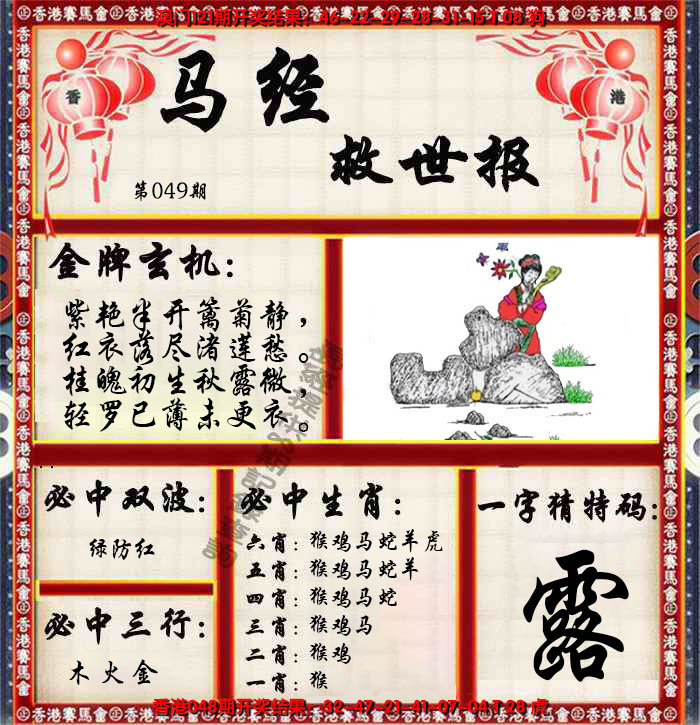 澳门121期开奖结果：46-22-29-28-31-15 T 08 狗
香
港
马经
救世报
第049期
金牌玄机：
紫艳半开篱菊静，
红衣落尽渚莲愁。
桂魄初生秋露微，
轻罗已薄未更衣。
必中双波：
绿防红
必中三行：
木火金
必中生肖：
六肖：猴鸡马蛇羊虎
五肖：猴鸡马蛇羊
四肖：猴鸡马蛇
三肖：猴鸡马
二肖：猴鸡
一肖：猴
一字猜特码：
露
香港048期开奖结果：32-47-21-41-07-04 T 28 虎
香港賽馬會